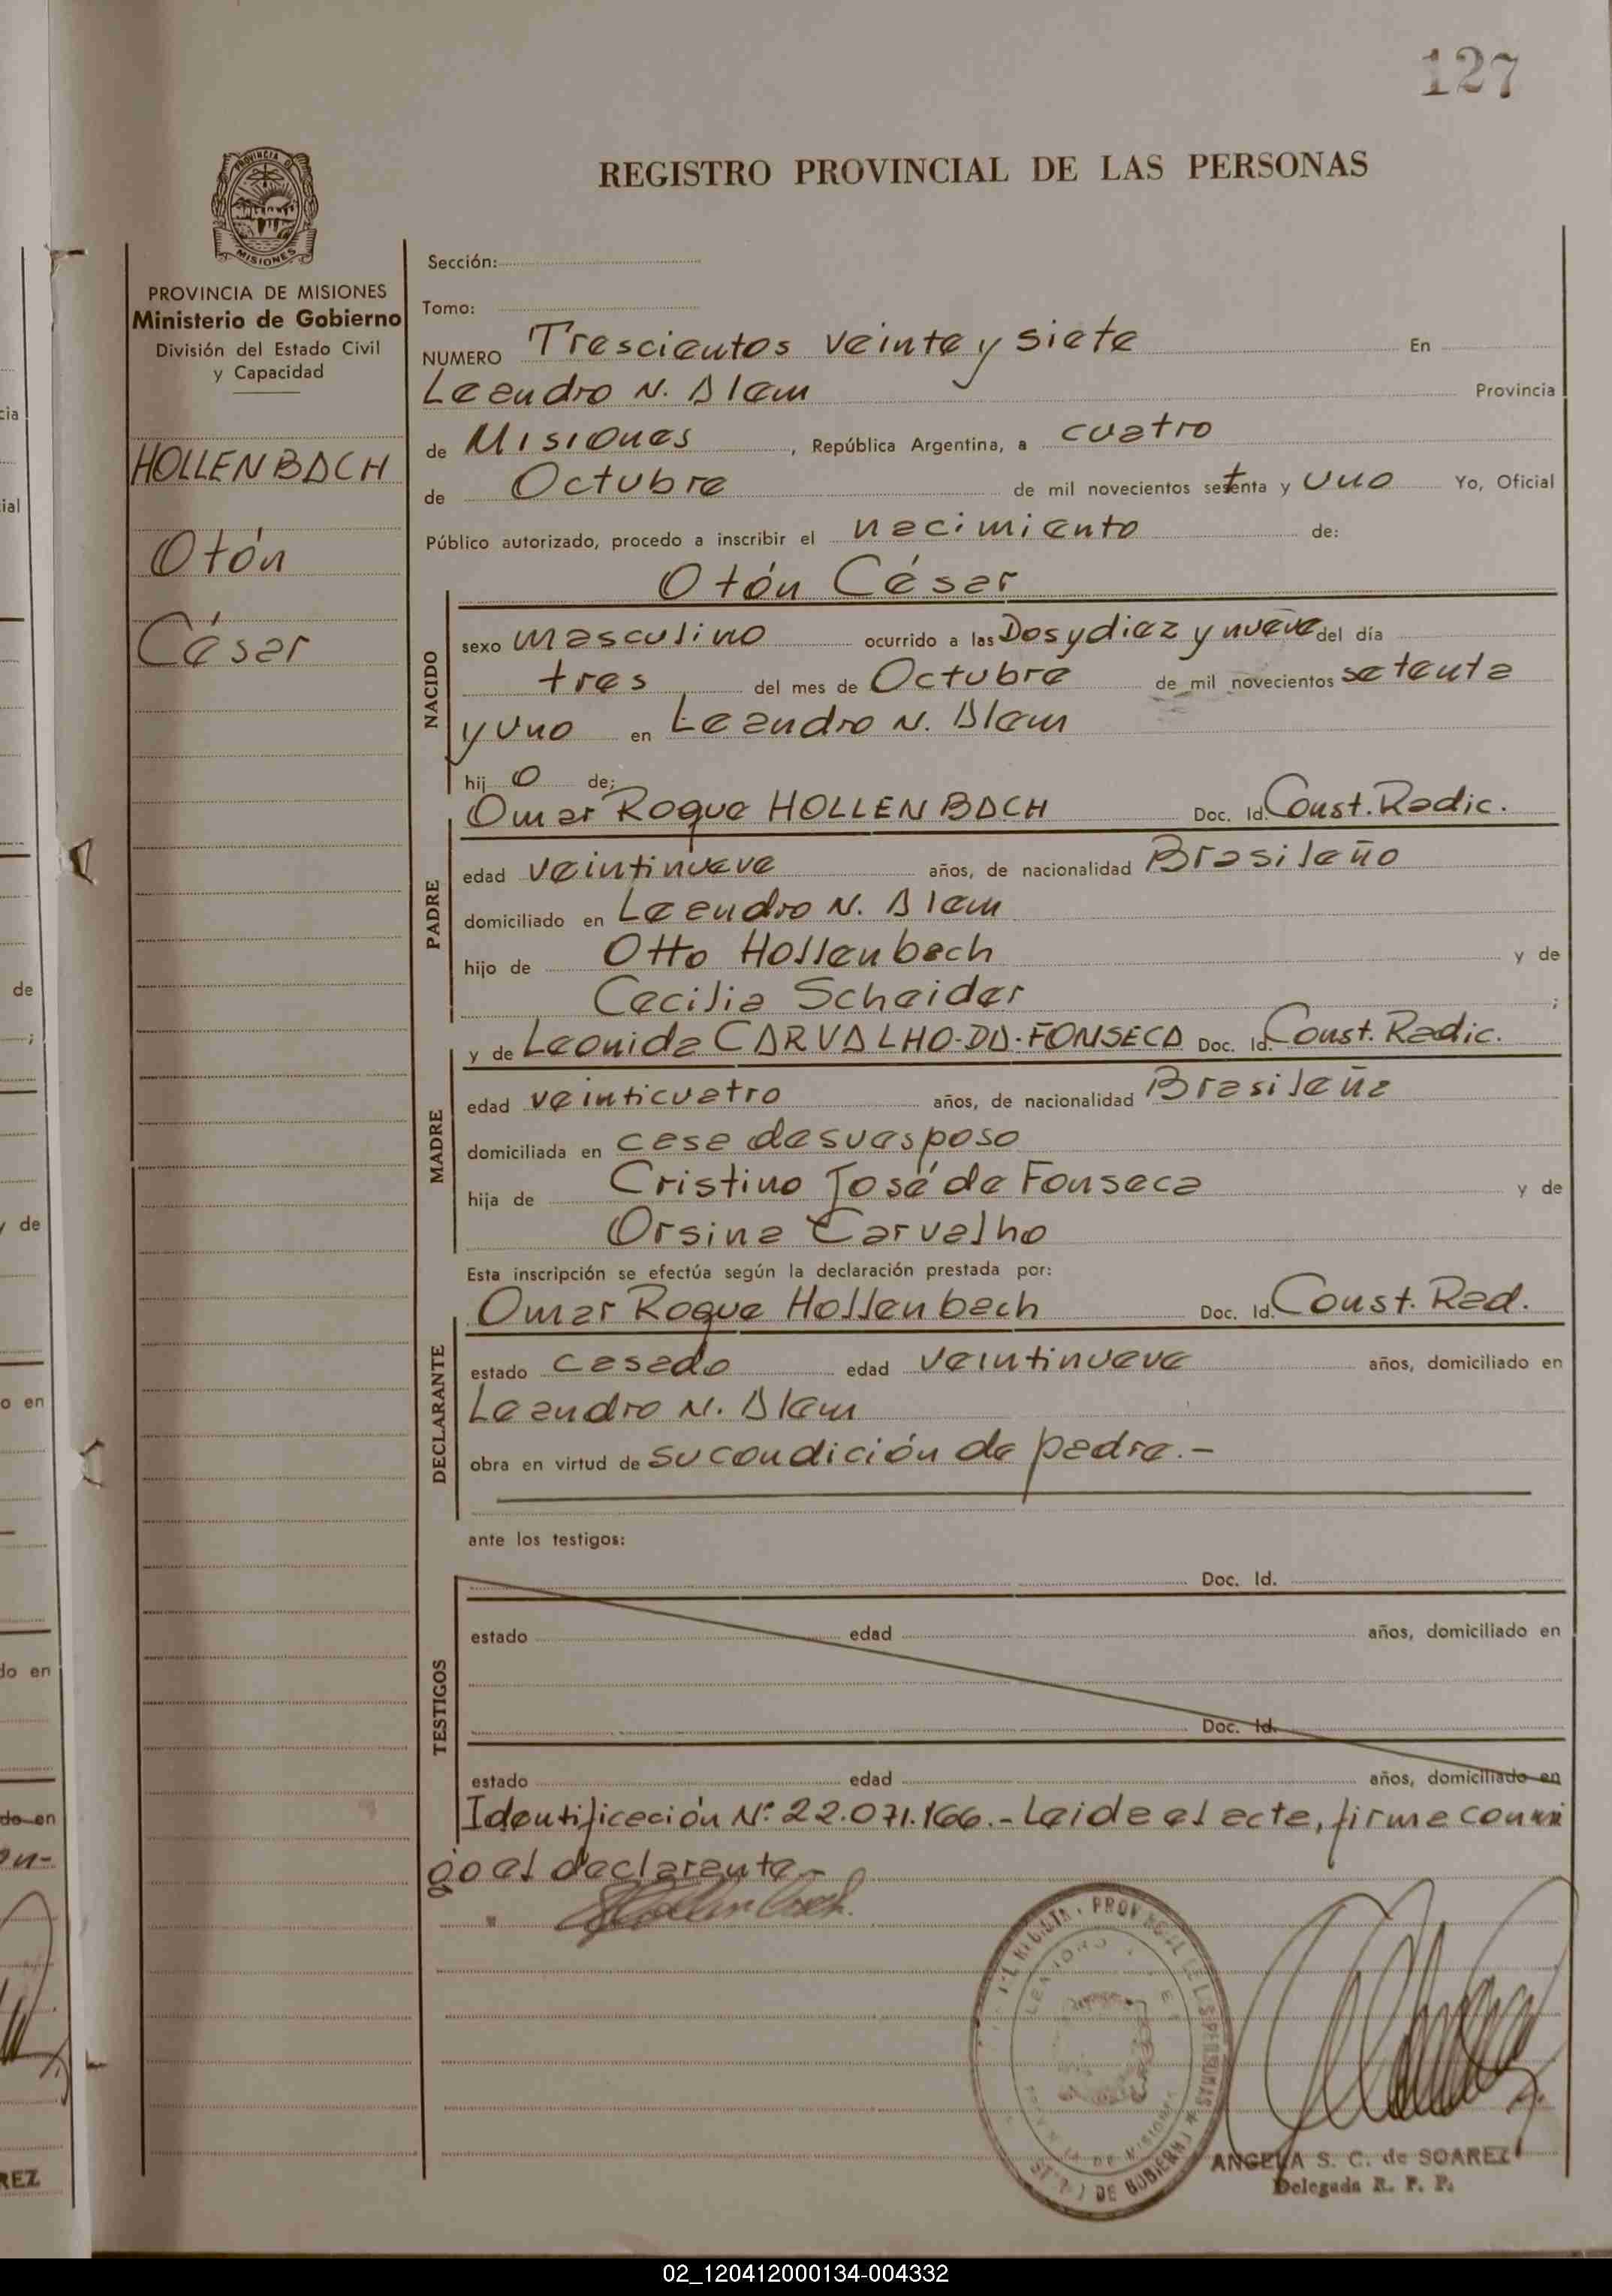 127
REGISTRO PROVINCIAL DE LAS PERSONAS
PROVINCIA DE
MISIONES
PROVINCIA DE MISIONES
Ministerio de Gobierno
División del Estado Civil
y Capacidad
HOLLENBACH
Otón
César
Sección:
Tomo:
NUMERO Trescientos veinte y siete En
Leandro N. Alem Provincia
de Misiones, República Argentina, a cuatro
de Octubre de mil novecientos setenta y uno Yo, Oficial
Público autorizado, procedo a inscribir el nacimiento de:
Otón César
NACIDO
sexo masculino ocurrido a las Dos y diez y nueve del día
tres del mes de Octubre de mil novecientos setenta
y uno en Leandro N. Alem
hijo de;
PADRE
Omar Roque HOLLENBACH Doc. Id. Const. Radic.
edad veintinueve años, de nacionalidad Brasileño
domiciliado en Leandro N. Alem
hijo de Otto Hollenbach y de
Cecilia Scheider ;
MADRE
y de Leonida CARVALHO-DA-FONSECA Doc. Id. Const. Radic.
edad veinticuatro años, de nacionalidad Brasileña
domiciliada en casa de su esposo
hija de Cristino José de Fonseca y de
Orsina Carvalho
Esta inscripción se efectúa según la declaración prestada por:
DECLARANTE
Omar Roque Hollenbach Doc. Id. Const. Rad.
estado casado edad veintinueve años, domiciliado en
Leandro N. Alem
obra en virtud de su condición de padre.-
ante los testigos:
TESTIGOS
Doc. Id.
estado edad años, domiciliado en
Doc. Id.
estado edad años, domiciliado en
Identificación Nº 22.071.166.- Leida el acta, firma conmi
go el declarante.-
ANGELA S. C. de SOAREZ
Delegada R. P. P.
02_120412000134-004332